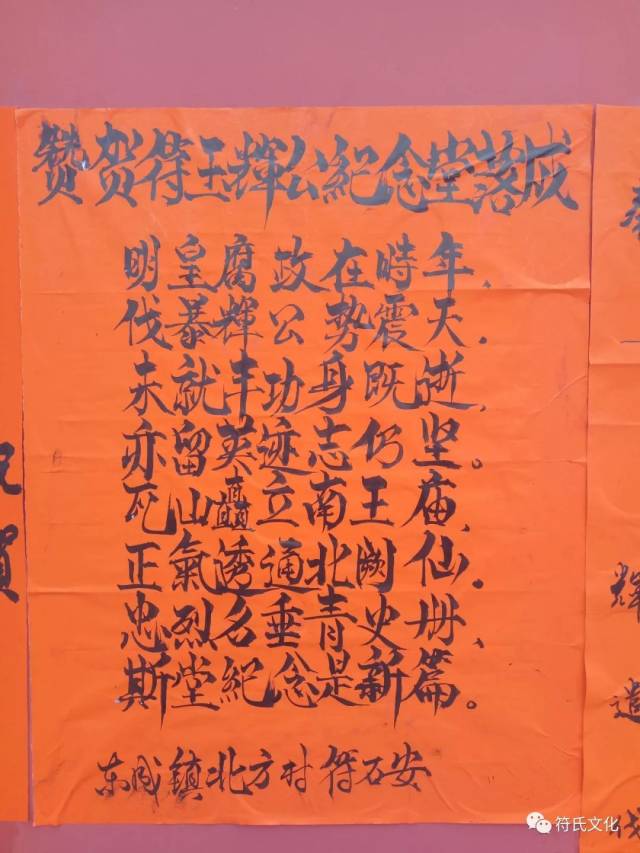 赞贺符王輝公紀念堂落成
明皇腐政在時年、
伐暴輝公势震天．
未就丰功身既逝、
亦留英迹志仍坚。
死山矗立南王庙、
正氣透通北闕仙．
忠烈名垂青史册、
斯堂紀念是新篇。
东成鎮北方村符石安
賀
輝
遣
符氏文化